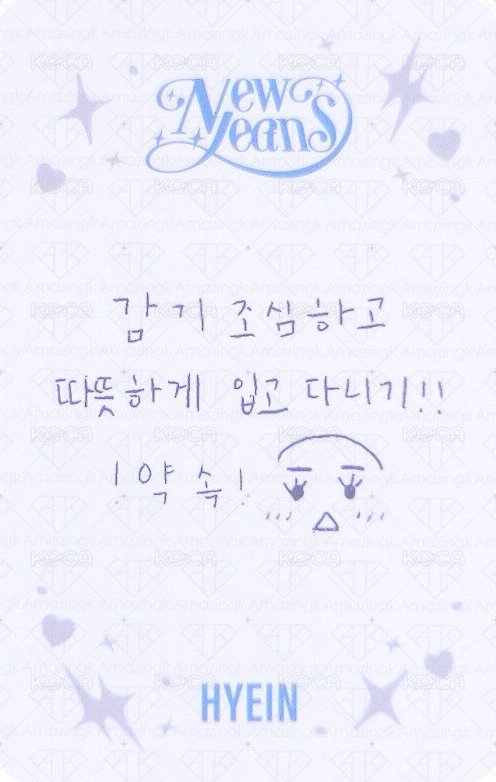 New
Jeans
감기 조심하고
따뜻하게 입고 다니기!!
!약속!
HYEIN